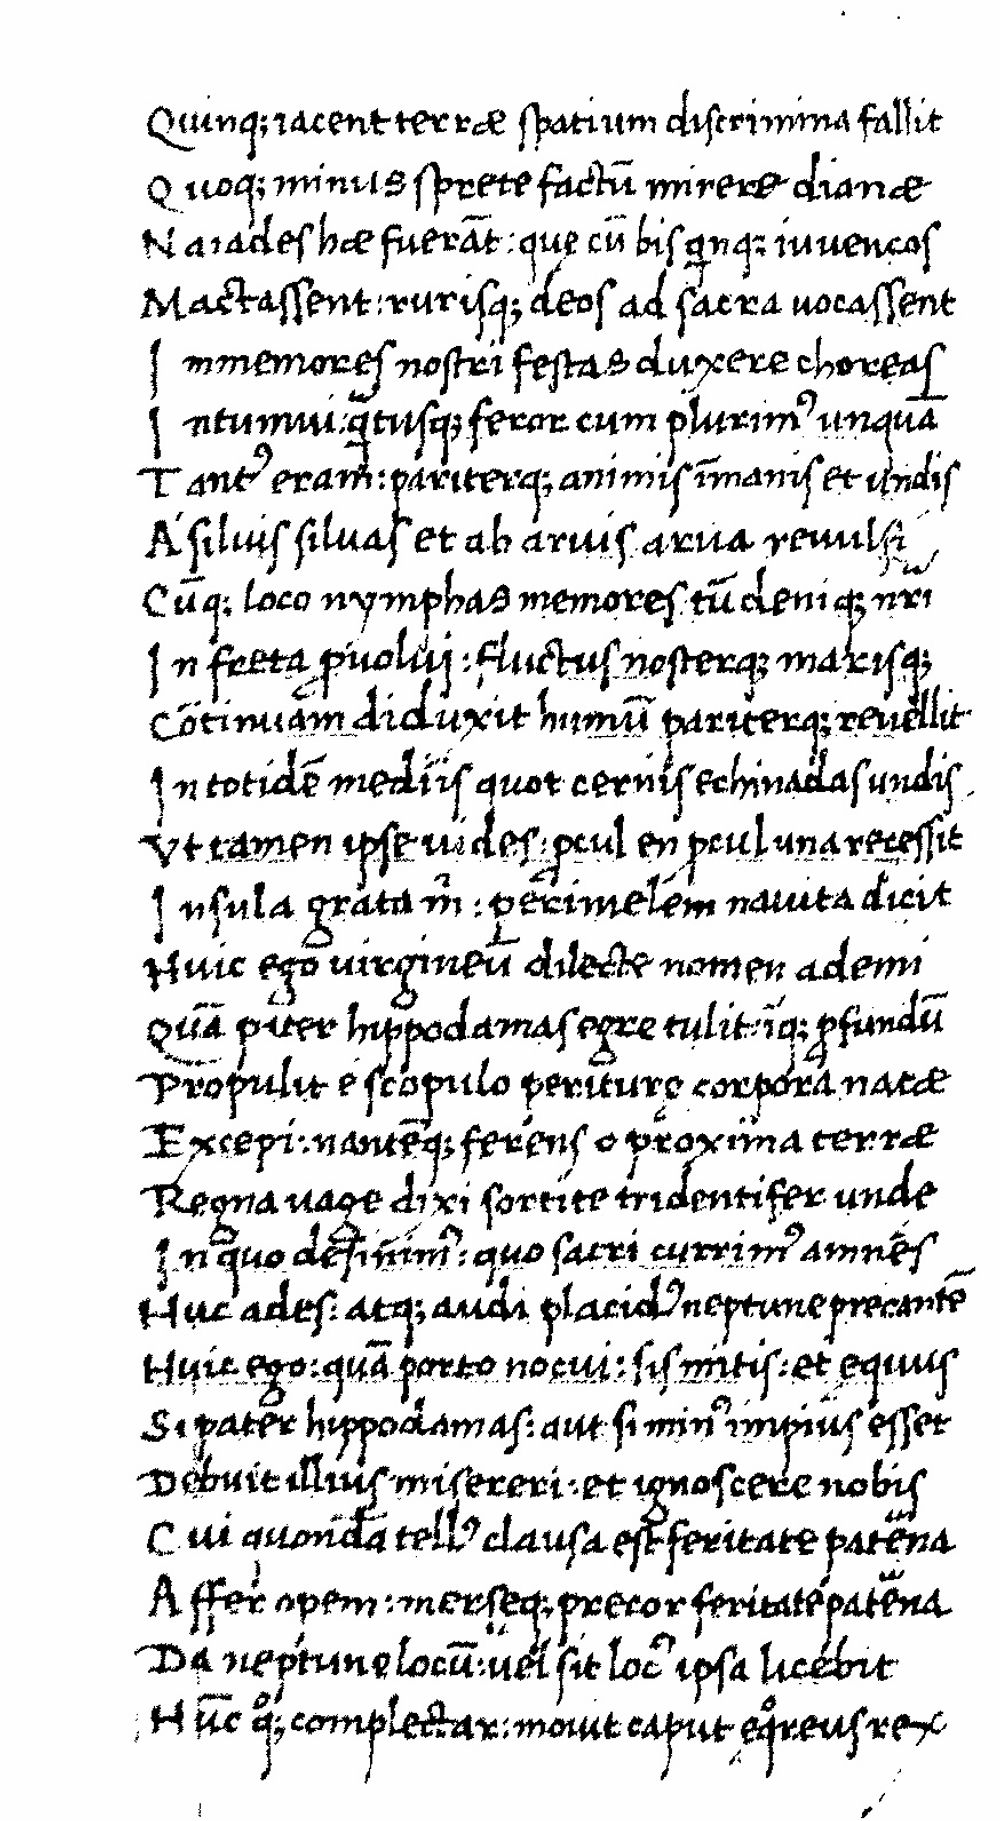 Quinq; iacent terræ spatium discrimina fallit
Quoq; minus sprete factū mirere dianæ
Naiades hæ fuerāt: quę cū bis qnq; iuuencos
Mactassent: rurisq; deos ad sacra uocassent
Immemores nostri festas duxere choreas
Intumui: q̄tusq; feror cum plurimꝰ unquā
Tantꝰ eram: pariterq; animis īmanis et undis
A siluis siluas et ab aruis arua reuulsi
Cūq; loco nymphas memores tū deniq; nr̄i
In freta ꝓuolui: fluctus nosterq; marisq;
Cōtinuam diduxit humū pariterq; reuellit
In totidē mediis quot cernis echinadas undis
Vt tamen ipse uides: ꝓcul en ꝓcul una recessit
Insula grata m̄: perimelem nauita dicit
Huic ego uirgineū dilecte nomen ademi
Quā pater hippodamas egre tulit: īq; ꝓfundū
Propulit e scopulo periturę corpora natæ
Excepi: nantēq; ferens o proxima terræ
Regna uage dixi sortite tridentifer unde
In quo desinimꝰ: quo sacri currimꝰ amnes
Huc ades: atq; audi placidꝰ neptune precantē
Huic ego: quā porto nocui: sis mitis: et equus
Si pater hippodamas: aut si minꝰ impius esset
Debuit illius misereri: et ignoscere nobis
Cui quondā tellꝰ clausa est feritate pat̄na
Affer opem: merseq; precor feritate pat̄na
Da neptune locū: uel sit locꝰ ipsa licebit
Hūc qͦ; complectar: mouit caput eqͦreus rex